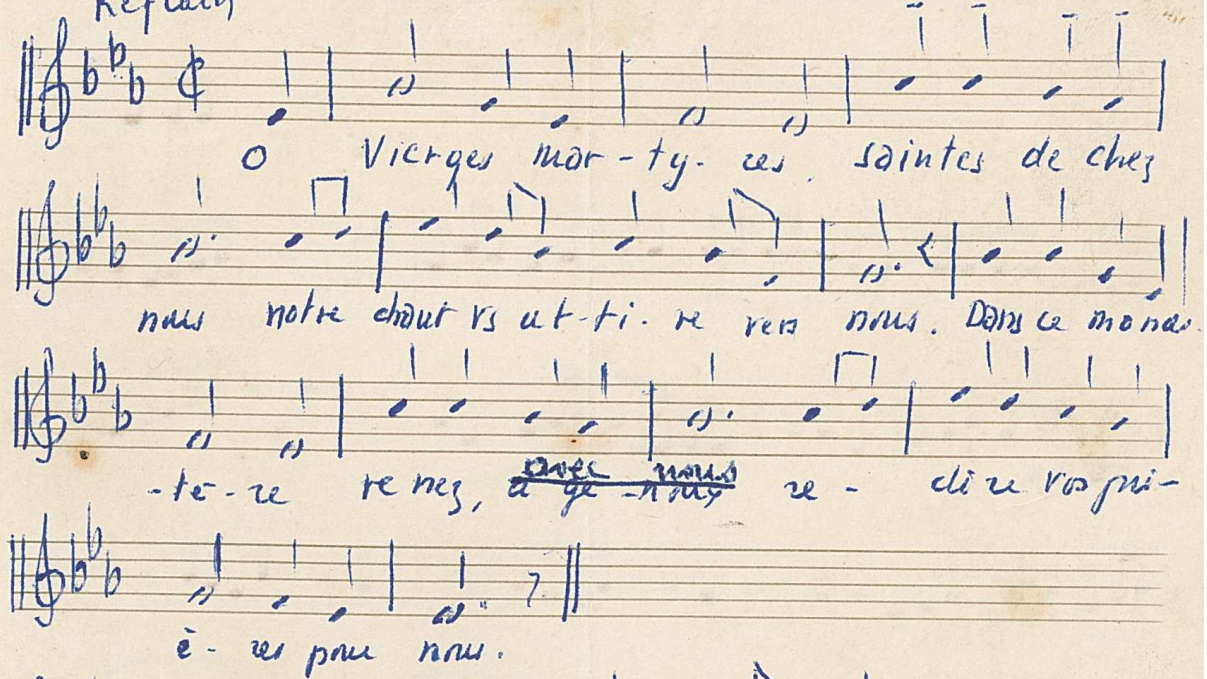 Refrain
O Vierges mar-ty-res. saintes de chez
nous notre chant vs at-ti-re vers nous. Dans ce monas-
-tè-re venez, avec nous re- dire vos pri-
à ge-noux
è-res pour nous.